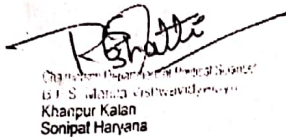 Chairperson Department of Political Science
B.P.S. Mahila Vishwavidyalaya
Khanpur Kalan
Sonipat Haryana